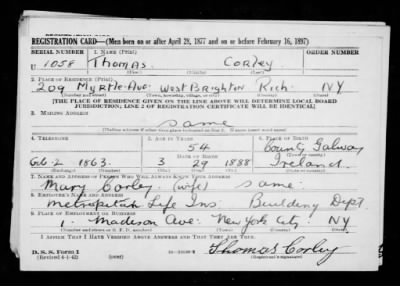 REGISTRATION CARD—(Men born on or after April 28, 1877 and on or before February 16, 1897)
SERIAL NUMBER 1. NAME (Print) ORDER NUMBER
U 1058 Thomas Corley
(First) (Middle) (Last)
2. PLACE OF RESIDENCE (Print)
209 Myrtle Ave West Brighton Rich. NY
(Number and street) (Town, township, village, or city) (County) (State)
[THE PLACE OF RESIDENCE GIVEN ON THE LINE ABOVE WILL DETERMINE LOCAL BOARD
JURISDICTION; LINE 2 OF REGISTRATION CERTIFICATE WILL BE IDENTICAL]
3. MAILING ADDRESS
Same
(Mailing address if other than place indicated on line 2. If same insert word same)
4. TELEPHONE 5. AGE IN YEARS 6. PLACE OF BIRTH
54 County Galway
DATE OF BIRTH
Gib. 2 1863. 3 29 1888 Ireland.
(Exchange) (Number) (Mo.) (Day) (Yr.) (State or country)
7. NAME AND ADDRESS OF PERSON WHO WILL ALWAYS KNOW YOUR ADDRESS
Mary Corley (wife) Same.
8. EMPLOYER'S NAME AND ADDRESS
Metropolitan Life Ins. Building Dept
9. PLACE OF EMPLOYMENT OR BUSINESS
1. Madison Ave: New York City. NY
(Number and street or R. F. D. number) (Town) (County) (State)
I AFFIRM THAT I HAVE VERIFIED ABOVE ANSWERS AND THAT THEY ARE TRUE.
D. S. S. Form 1
(Revised 4-1-42) Thomas Corley
(Registrant's signature)